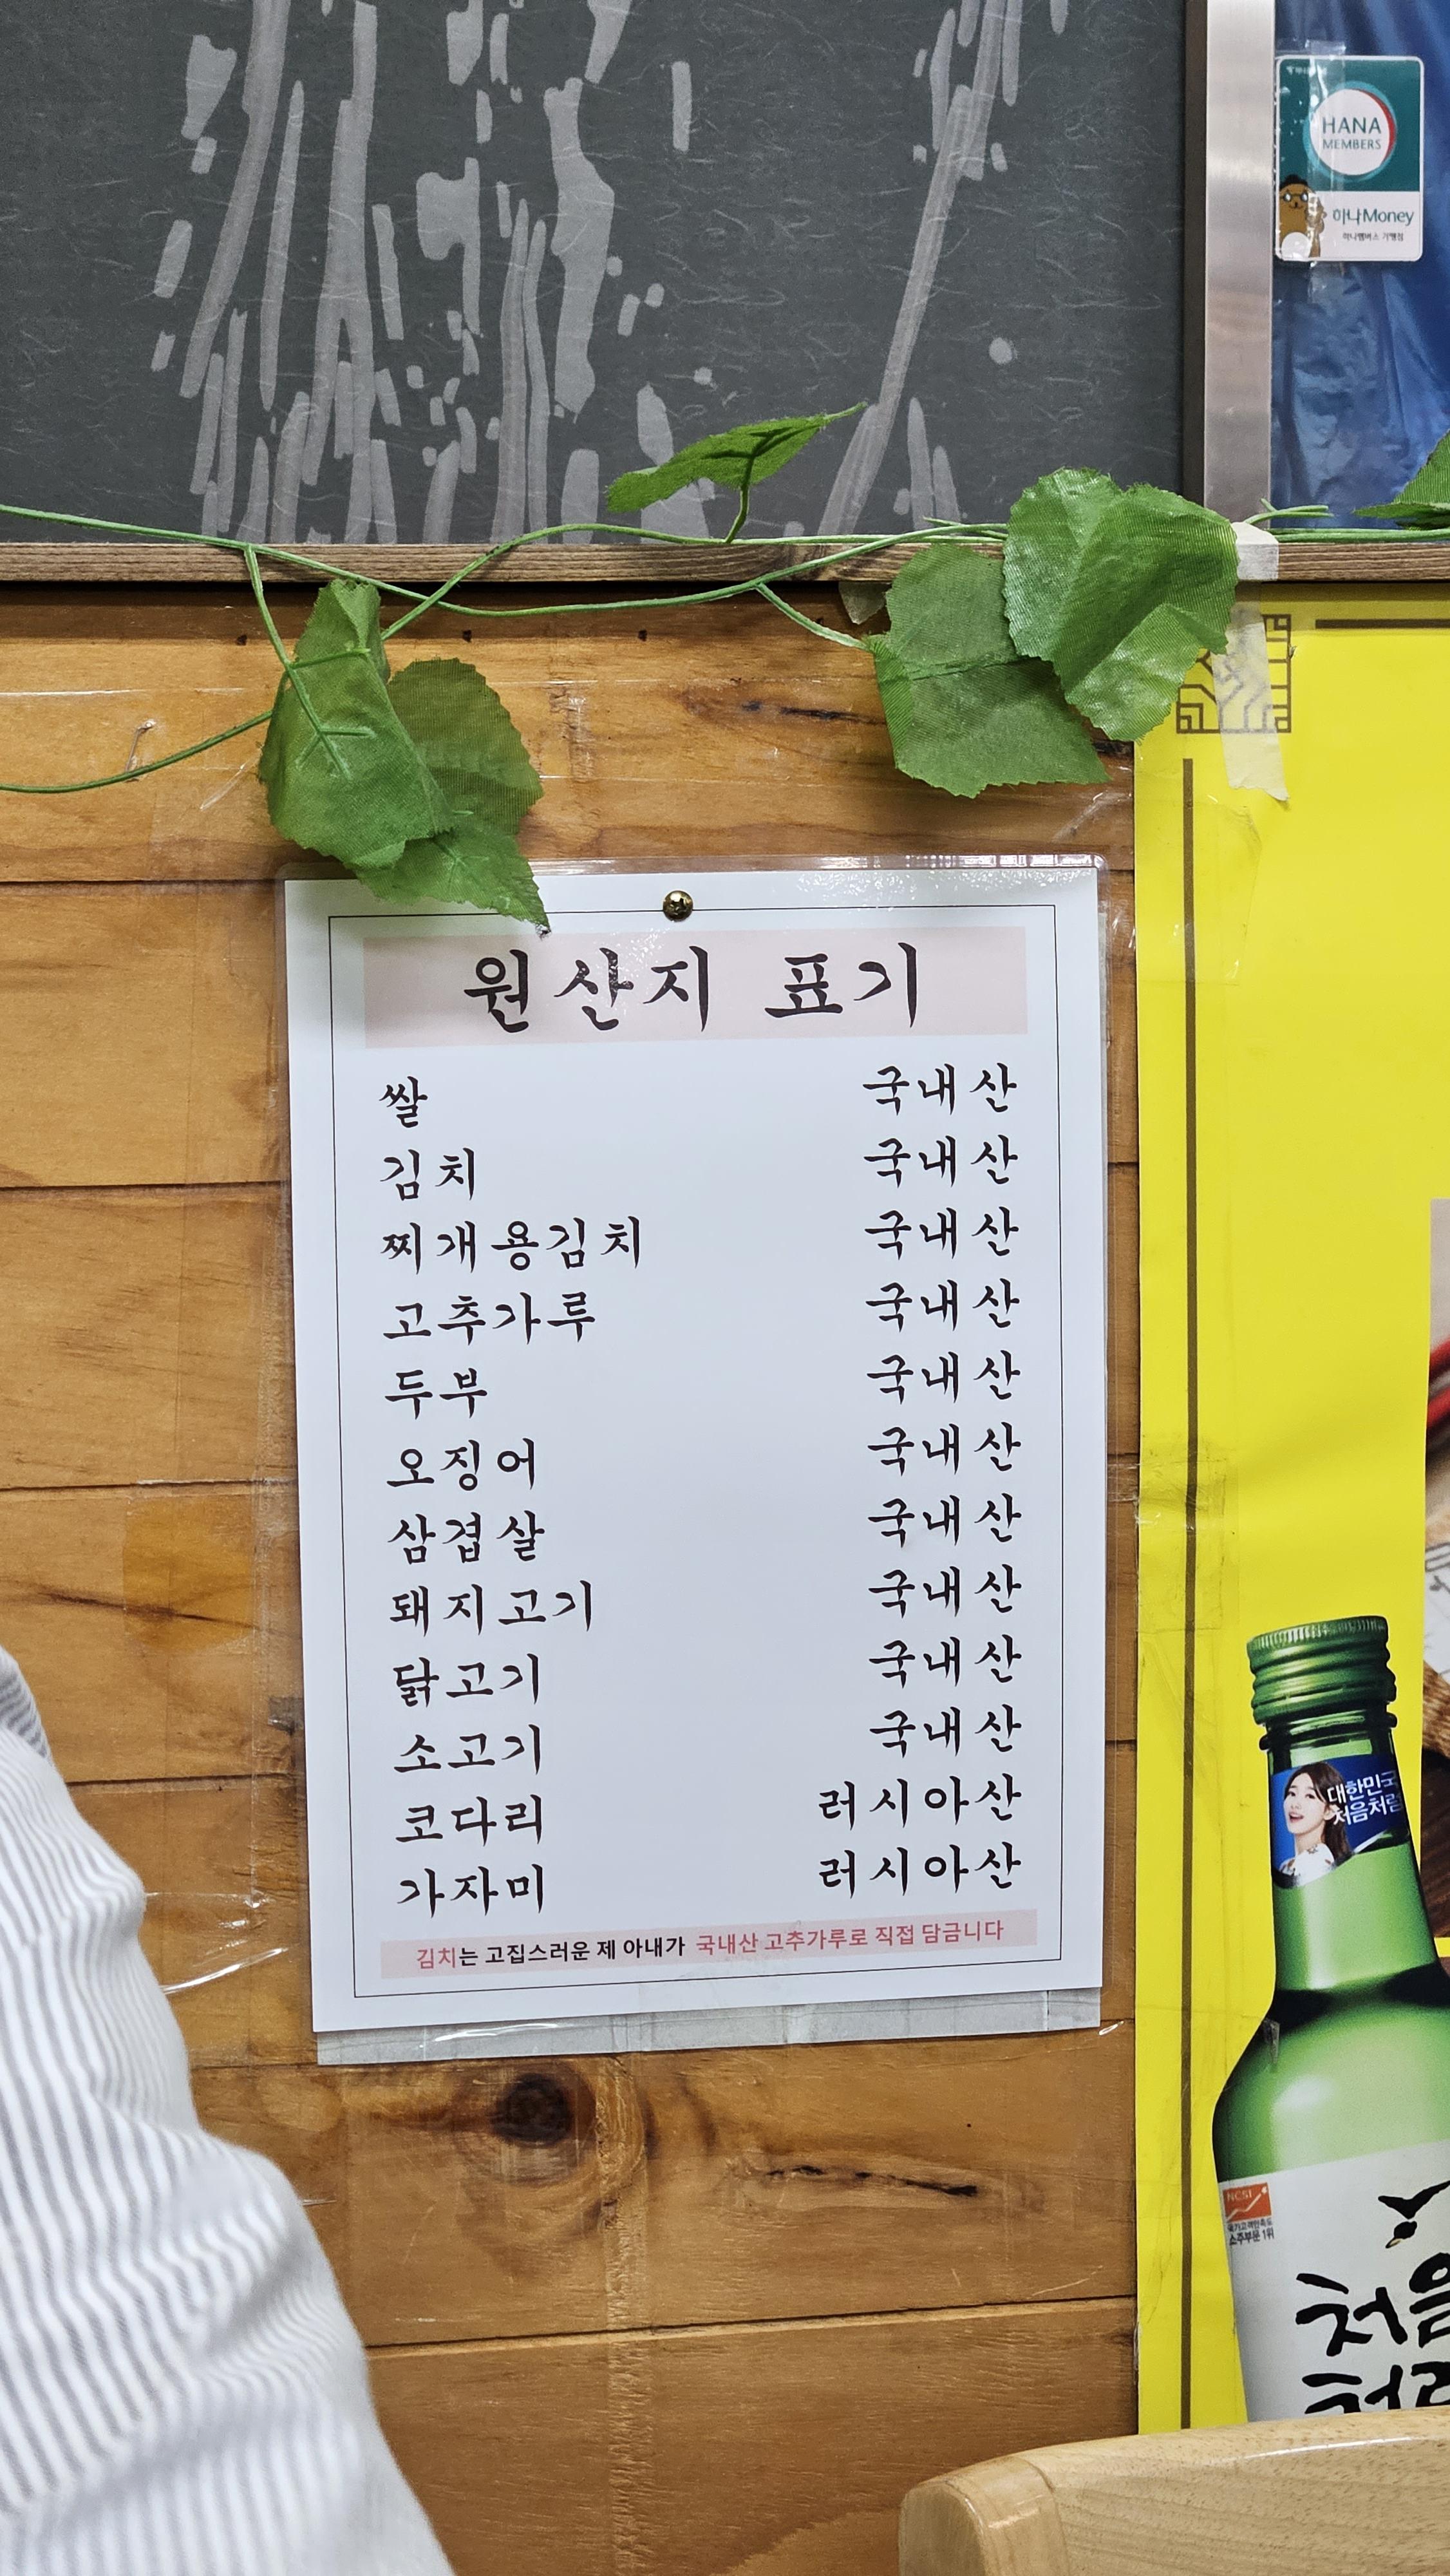 HANA
MEMBERS
하나Money
하나멤버스 가맹점
원산지 표기
쌀 국내산
김치 국내산
찌개용김치 국내산
고추가루 국내산
두부 국내산
오징어 국내산
삼겹살 국내산
돼지고기 국내산
닭고기 국내산
소고기 국내산
코다리 러시아산
가자미 러시아산
김치는 고집스러운 제 아내가 국내산 고추가루로 직접 담금니다
대한민국
처음처럼
NCSI
국가고객만족도
소주부문 1위
처음
처럼